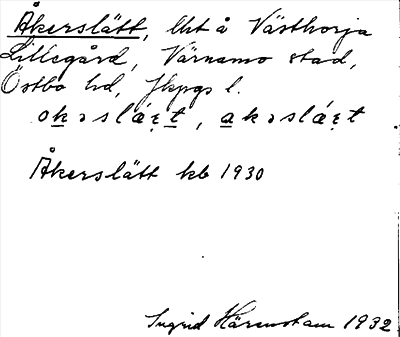 Åkerslätt, lht å Västhorja
Lillegård, Värnamo stad,
Östbo hd, Jkpgs l.
okəslä́ꞓt, akəslä́ꞓt
Åkerslätt kb 1930
Ingrid Härenstam 1932